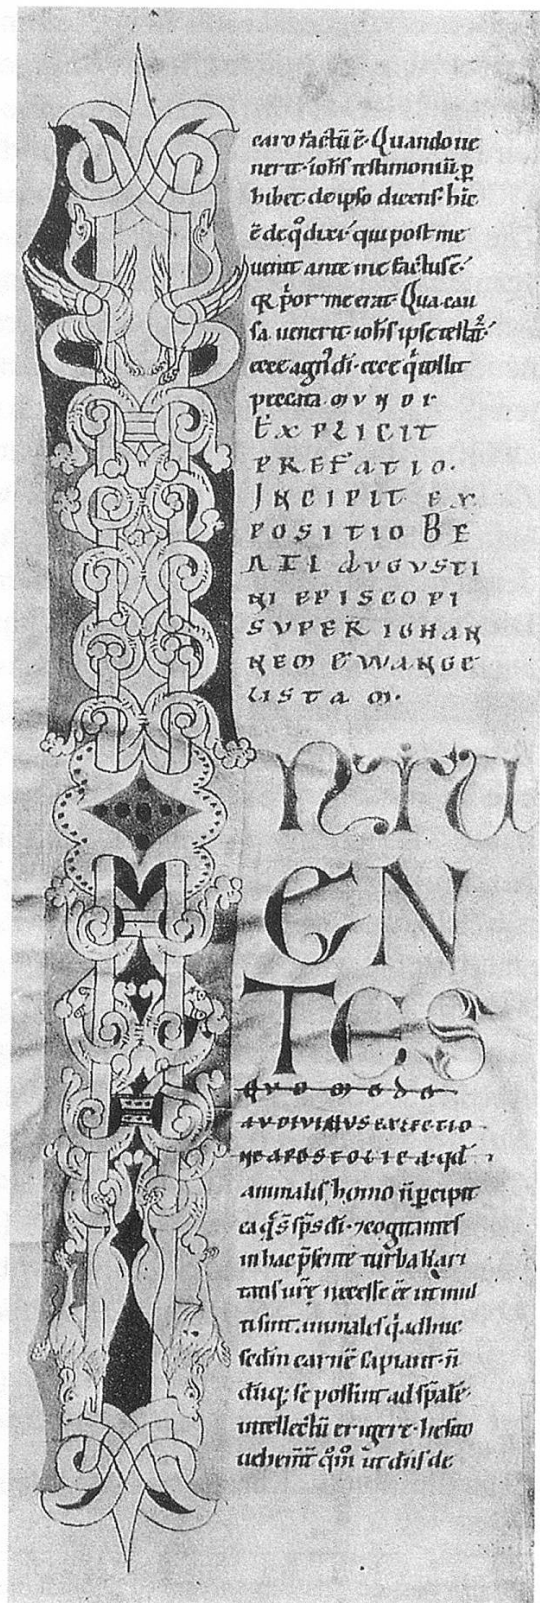 caro factũ ẽ· Quando ue
nerit· ioħs testimoniũ p̱
hibet de ipso dicens· hic
ẽ de q̊ dixi· qui post me
uenit ante me factus ẽ·
qꝛ p̍or me erat· Qua cau
sa uenerit ioħs ipse testat᷑·
ecce agn̍ dī· ecce q̍ tollit
peccata MUNDI
EXPLICIT
PREFATIO·
INCIPIT EX
POSITIO BE
ATI AUGUSTI
NI EPISCOPI
SUPER IOHAN
NEM EWANGE
LISTAM·
NTU
EN
TES
QUOMODO
AUDIUIMUS EX LECTIO
NE APOSTOLICA· qđ
animalis homo ñ p̱cipit
ea q̄ s̄ sp̄s dī· ⁊ cogitantes
in hac p̄sente turba kari
tatis ur̄ę necesse ẽẽ ut mul
ti sint animales q̍ adhuc
sed̄m carnẽ sapiant· ñ
dūq; se possint ad sp̄alẽ
intellectũ erigere· hesito
uehem̄t̄ q̊m̊ ut dn̄s de